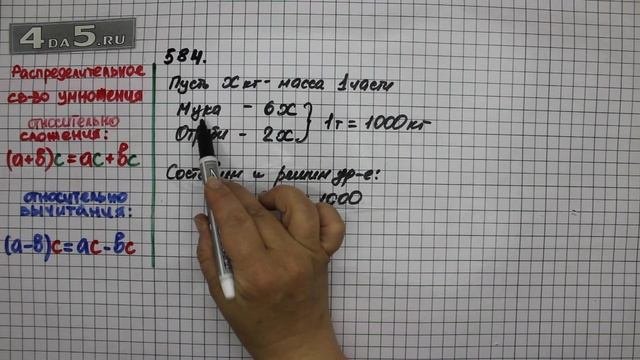 4DA5.RU
Распределительное
св-во умножения
относительно
сложения:
(а+в)с=ас+вс
относительно
вычитания:
(а-в)с=ас-вс
584.
Пусть х кг - масса 1 части
Мука - 6х
- 2х
1т = 1000 кг
и решим ур-е:
1000